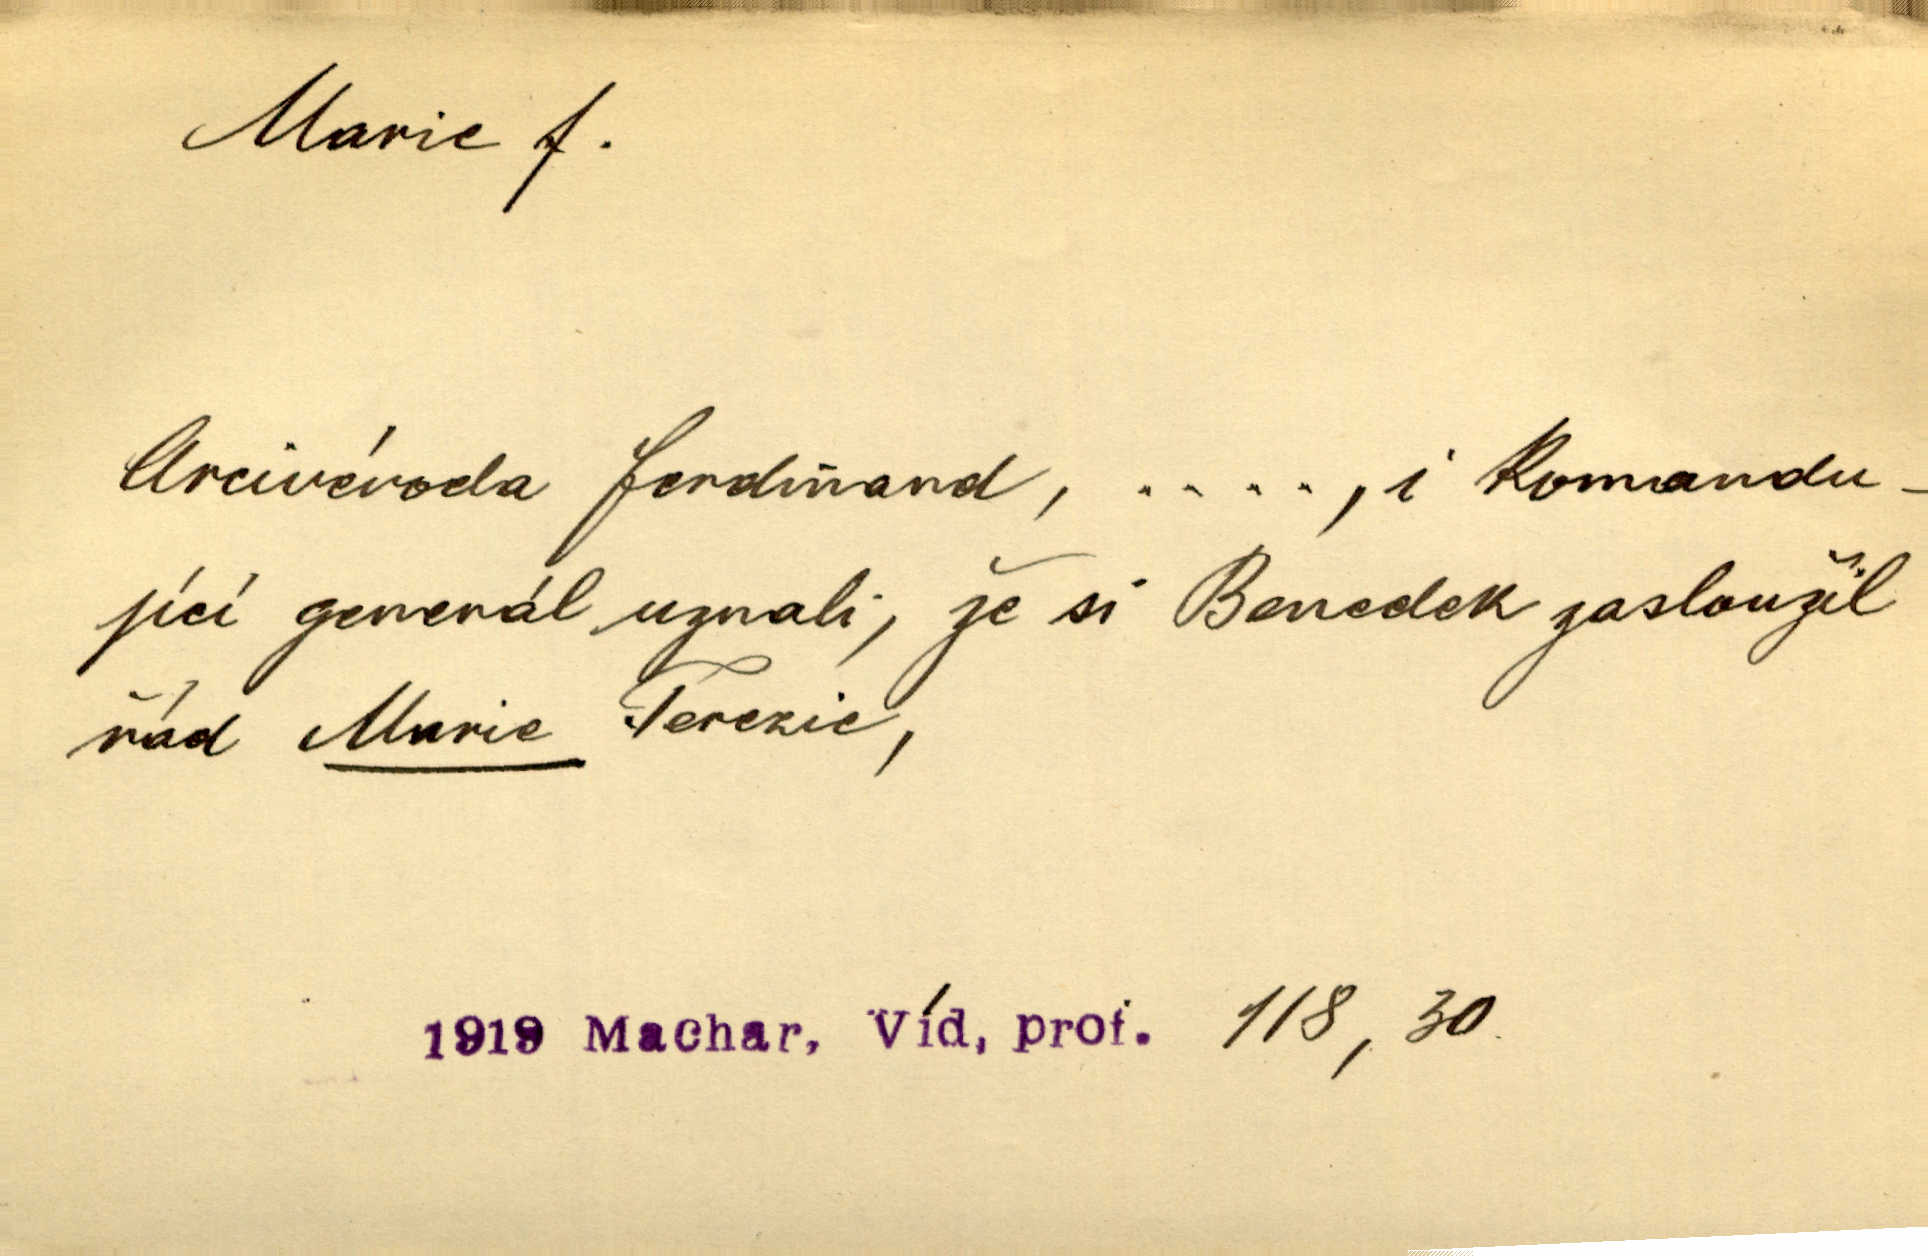 Marie f.
Arcivévoda Ferdinand, ....., i komandu-
jící generál uznali, že si Benedek zasloužil
řád Marie Terezie,
1919 Machar, Víd, prof. 118, 30